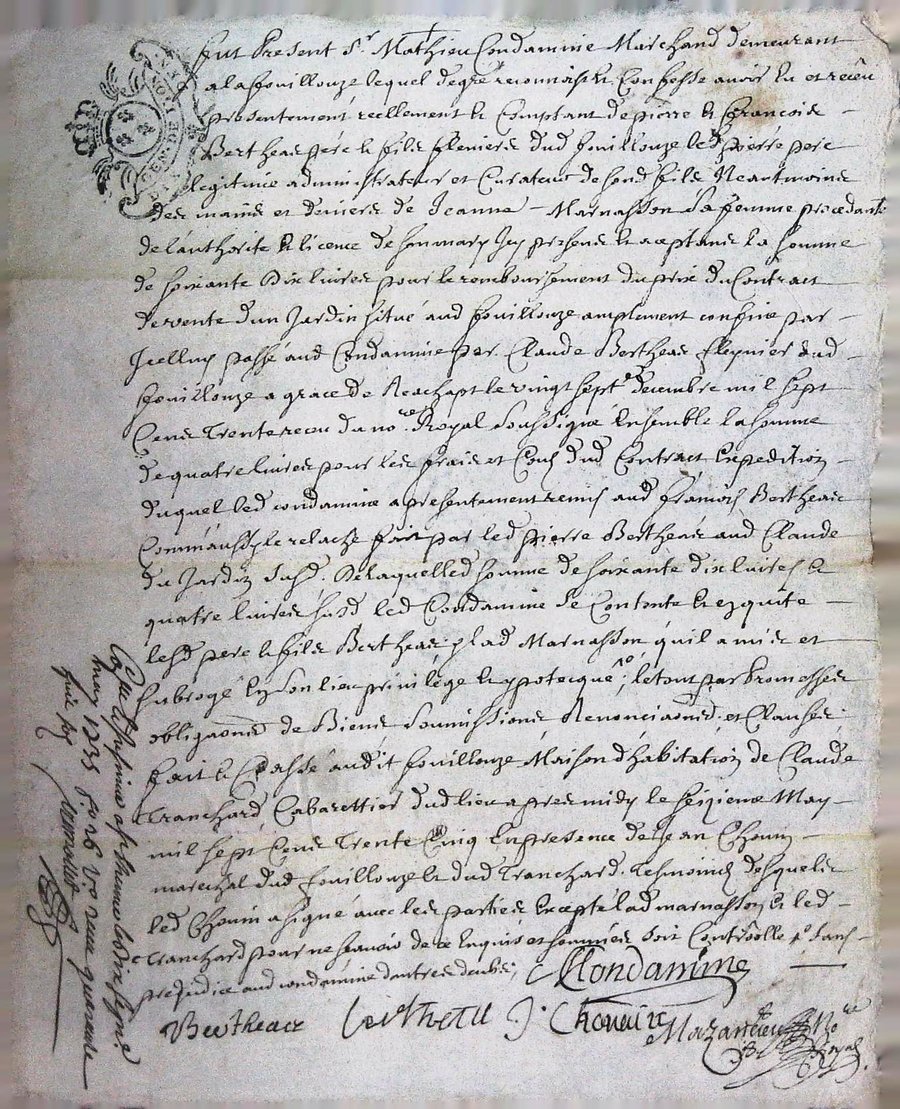 Fut Present Sr. Mathieu Condamine Marchand demeurant
a la fouillouze lequel de gre reconnoist et Confesse avoir eu et receu
presentement reellement et Comptant de pierre et francois
Bertheas pere et fils dud fouillouze led pierre pere
legitime administrateur et Curateur de sond fils Neantmoins
des mains et deniers de Jeanne Marnasson sa femme procedante
de l'authorité et licence de son mary Icy presens et aceptans la somme
de soixante Dix livres pour le remboursement du prix du Contract
de vente d'un Jardin situé aud fouillouze amplement confiné par
Icelluy passé aud Condamine par Claude Bertheas dud
fouillouze a grace de Reachapt le vingt sept decembre mil sept
Cens Trente receu du no.re Royal soussigné Ensemble la somme
de quatre livres pour les frais et Cous dud Contract Expedition
duquel led condamine a presentement remis aud francois Bertheas
Comme aussy le relache fait par led pierre Bertheas aud Claude
du Jardin susd. De laquelle somme de soixante dix livres et
quatre livres susd led Condamine se Contente et en quitte
lesd pere et fils Bertheas et lad Marnasson qu'il a mis et
subrogé En son lieu privilége et ypotecque, le tout par promesses
obligaons de Biens soumissions Renonciaons et Clauses
fait et Passé audit fouillouze Maison d'habitation de Claude
Tranchard Cabarettier dud lieu apres midy le seizieme May
mil sept Cens Trente Cinq En presence de Jean Chovin
marechal dud fouillouze et dud Tranchard Tesmoins desquels
led Chovin a signé avec les parties Excepté lad marnasson et led
Tranchard pour ne scavoir de ce Enquis et sommés soit Controollé sans
prejudice aud condamine d'autres deubs;
MCondamine
Bertheas Bertheas J. Chovin
Mazan No.re Royal
may 1735 receu quarante
GEN DE LYON